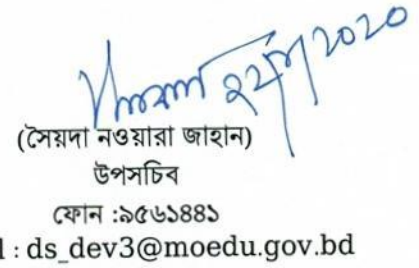 (সৈয়দা নওয়ারা জাহান)
উপসচিব
ফোন :৯৫৬১৪৪১
l : ds_dev3@moedu.gov.bd